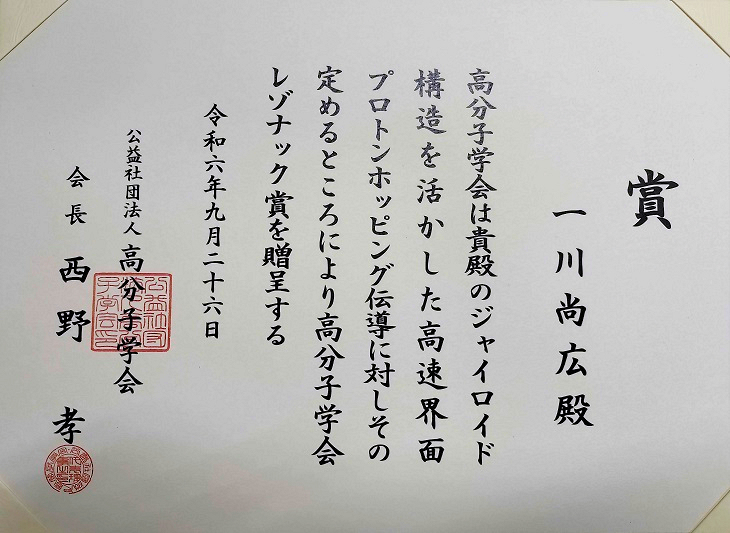 賞
一川尚広殿
高分子学会は貴殿のジャイロイド
構造を活かした高速界面
プロトンホッピング伝導に対しその
定めるところにより高分子学会
レゾナック賞を贈呈する
令和六年九月二十六日
公益社団法人 高分子学会
会長 西野 孝